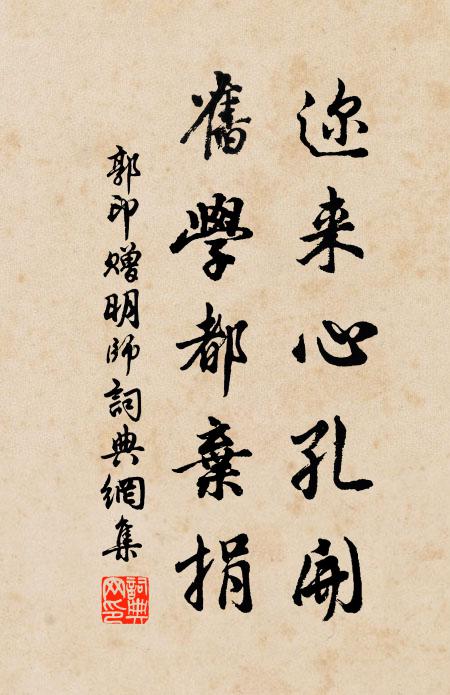 迩来心孔開
舊學都棄捐
郭印贈明師詞典網集
詞典網印